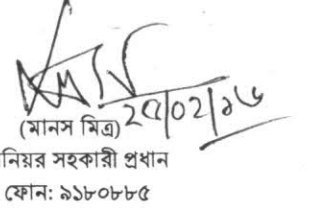 ২৫/০২/১৬
(মানস মিত্র)
নিয়র সহকারী প্রধান
ফোন: ৯১৮০৮৮৫